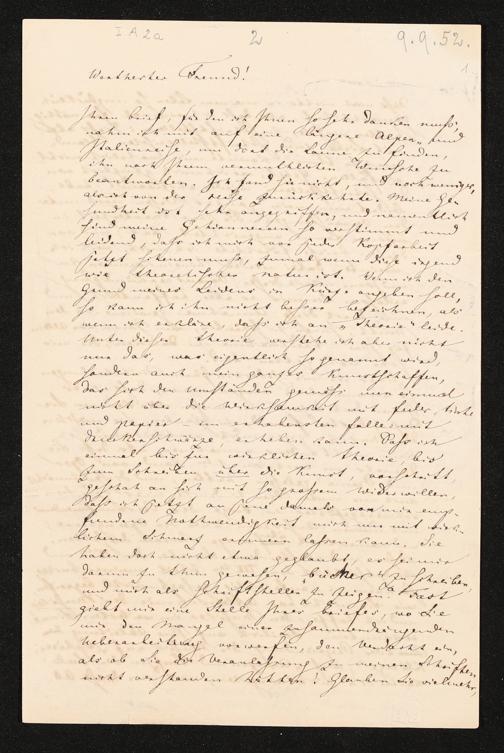 I A 2a
2
9. 9. 52.
1.
Werthester Freund!
Ihren Brief, für den ich Ihnen so sehr danken muß,
nahm ich mit auf eine längere Alpen- und
Italienreise, um dort die Laune zu finden,
ihn nach Ihrem vermuthlichen Wunsche zu
beantworten. Ich fand sie nicht, und noch weniger,
als ich von der Reise zurückkehrte. Meine Ge-
sundheit ist sehr angegriffen, und namentlich
sind meine Gehirnnerven so verstimmt und
leidend, daß ich mich vor jeder Kopfarbeit
jetzt scheuen muß, zumal wenn diese irgend
wie theoretischer Natur ist. Wenn ich den
Grund meines Leidens in Kürze angeben soll,
so kann ich ihn nicht besser bezeichnen, als
wenn ich erkläre, daß ich an "Theorie" leide.
Unter dieser Theorie verstehe ich aber nicht
nur das, was eigentlich so genannt wird,
sondern auch mein ganzes Kunstschaffen,
das sich den Umständen gemäß nun einmal
nicht über die Wirksamkeit mit Feder, Tinte
und Papier – im erhabensten Falle mit
Druckerschwärze erheben kann. Daß ich
einmal bis zur wirklichen Theorie bis
zum Schreiben über die Kunst, vorschritt,
geschah an sich mit so großem Widerwillen,
daß ich jetzt an jene damals von mir emp-
fundene Nothwendigkeit mich nur mit wirk-
lichem Schmerz erinnern lassen kann. Sie
haben doch nicht etwa geglaubt, es sei mir
darum zu thun gewesen, "Bücher" zu schreiben,
und mich als Schriftsteller zu zeigen? Fast
giebt mir eine Stelle Ihres Briefes, wo Sie
mir den Mangel einer zusammendrängenden
Ueberarbeitung vorwerfen, den Verdacht ein,
als ob Sie die Veranlassung zu meinen Schriften
nicht verstanden hätten! Glauben Sie vielmehr,